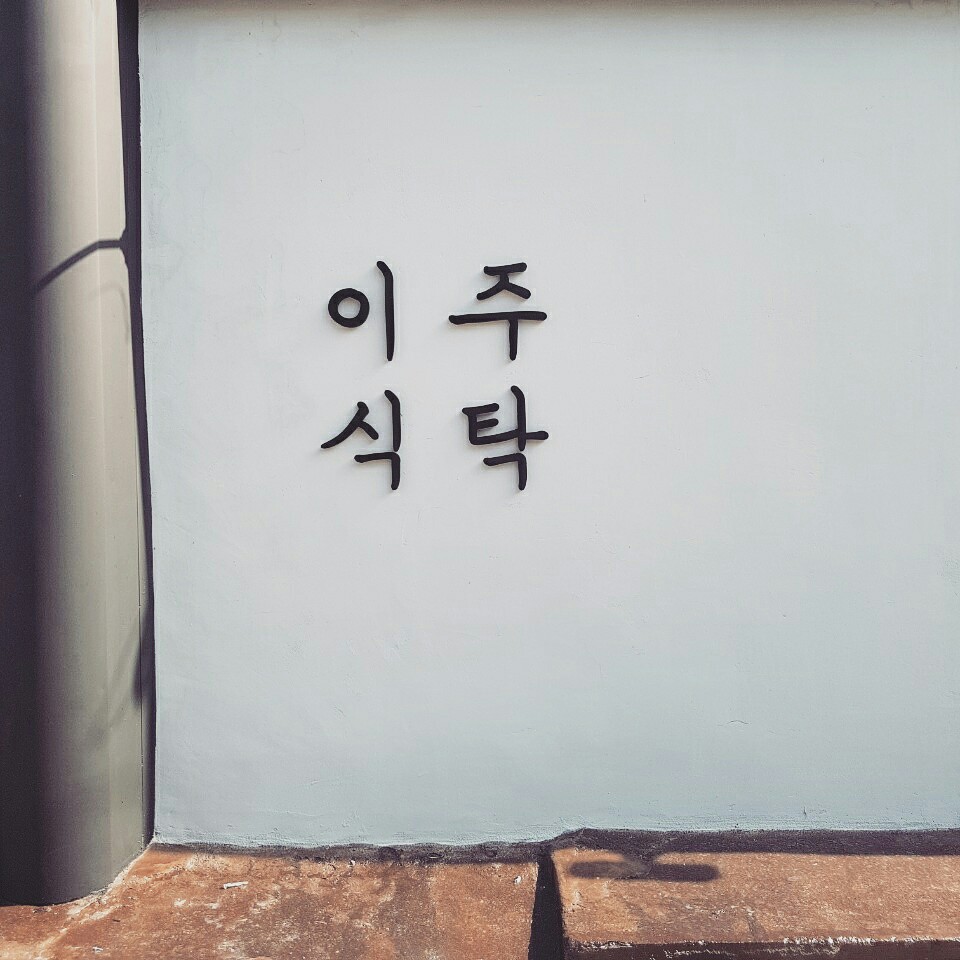 이 주
식 탁